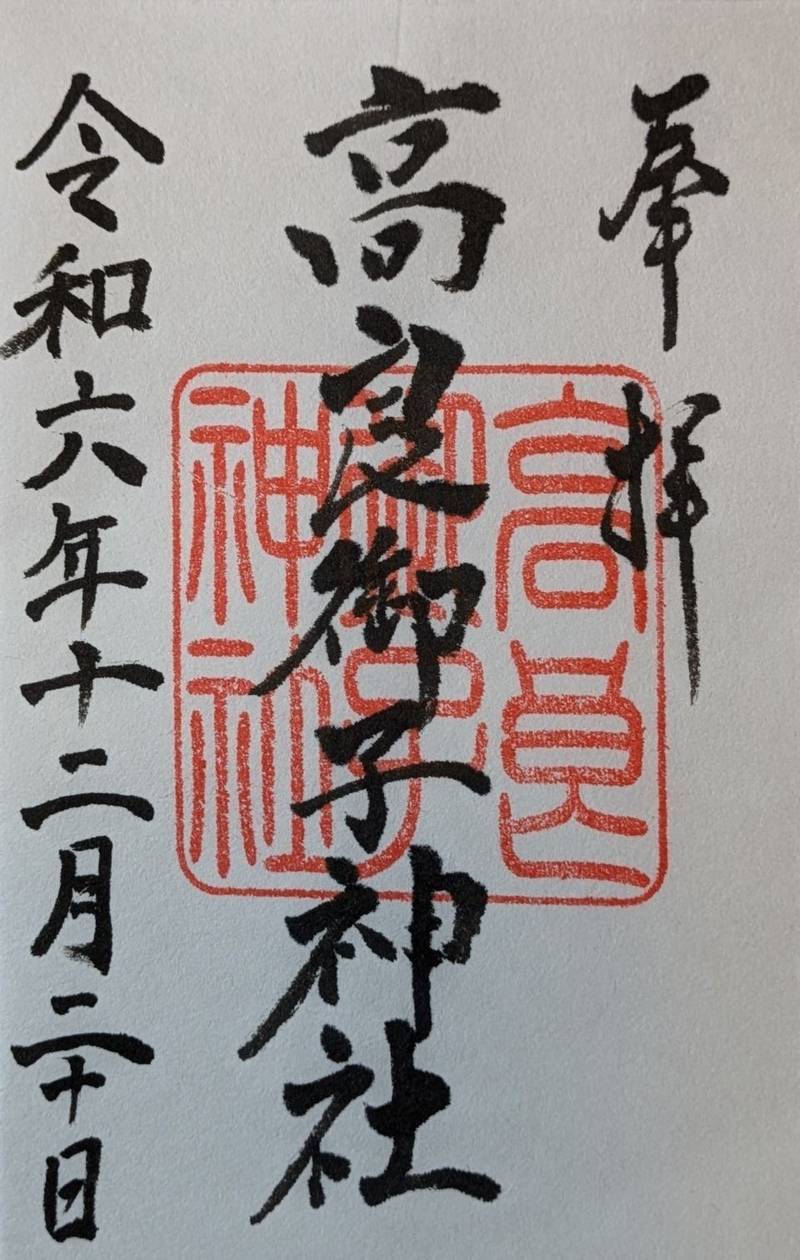 奉拝
高良御子神社
高良御子神社
令和六年十二月二十日